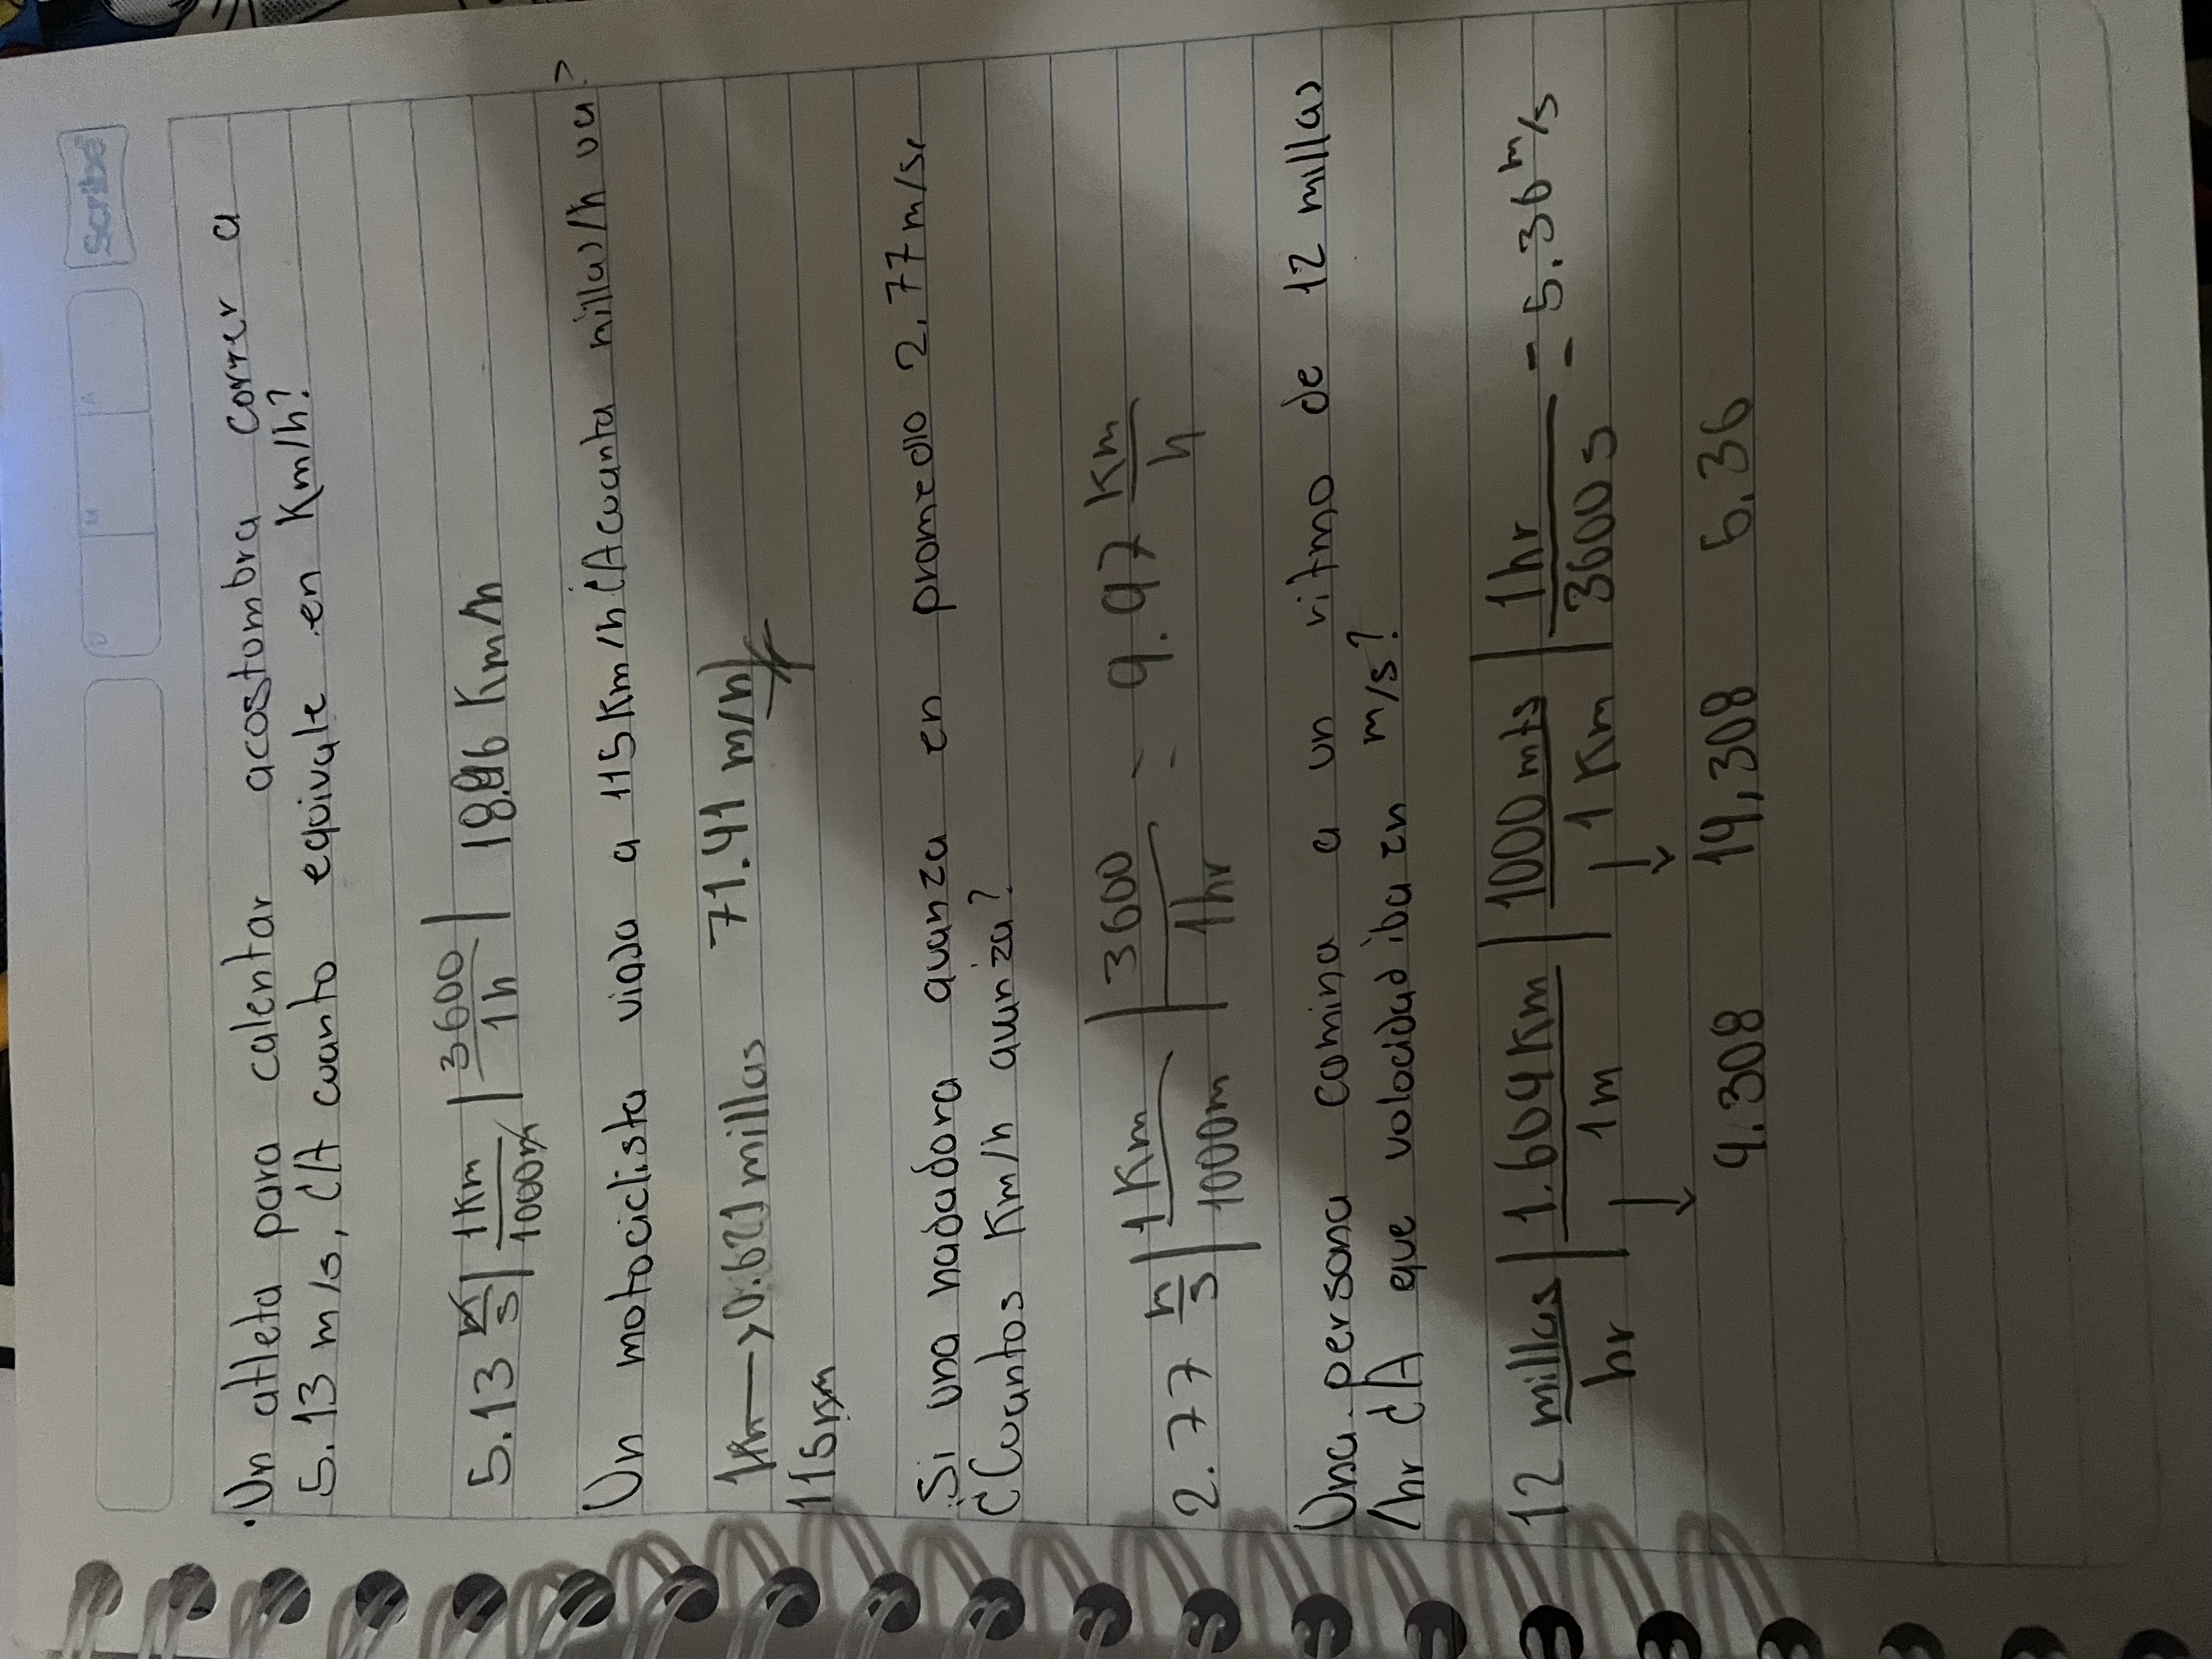 Scribe
D M A
.Un atleta para calentar acostumbra correr a
5.13 m/s, ¿A cuanto equivale en Km/h?
5.13 m/s | 1Km/1000m | 3600/1h | 18.46 Km/h
Un motociclista viaja a 115Km/h ¿A cuanta millas/h va?
1Km → 0.621 millas 71.41 m/h
115Km
Si una nadadora avanza en promedio 2.77m/s,
¿Cuantos Km/h avanza?
2.77 m/s | 1Km/1000m | 3600/1hr = 9.97 Km/h
Una persona camina a un ritmo de 12 millas
/hr ¿A que velocidad iba en m/s?
12 millas/hr | 1.609Km/1m | 1000mts/1Km | 1hr/3600s = 5.36 m/s
9.308 19,308 5.36